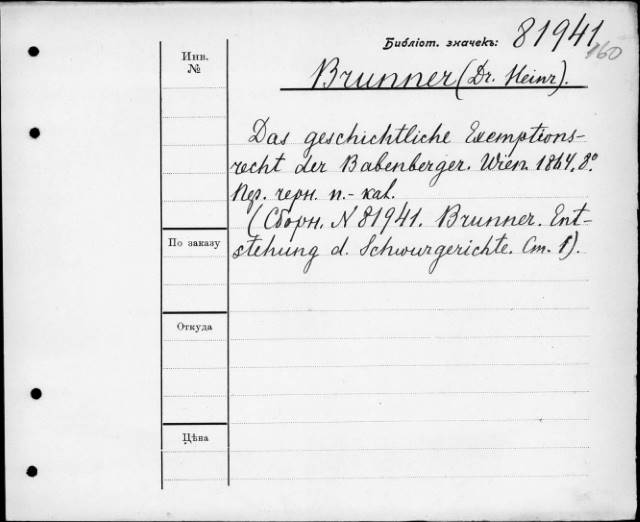 Библіот. значекъ: 81941
160
Инв.
№
Brunner (Dr. Heinr).
Das geschichtliche Exemptions-
recht der Babenberger. Wien 1864. 8°.
Пер. черн. п.-кал.
(Сборн. N 81941. Brunner. Ent-
stehung d. Schwurgerichte. Ст. 1).
По заказу
Откуда
Цѣна